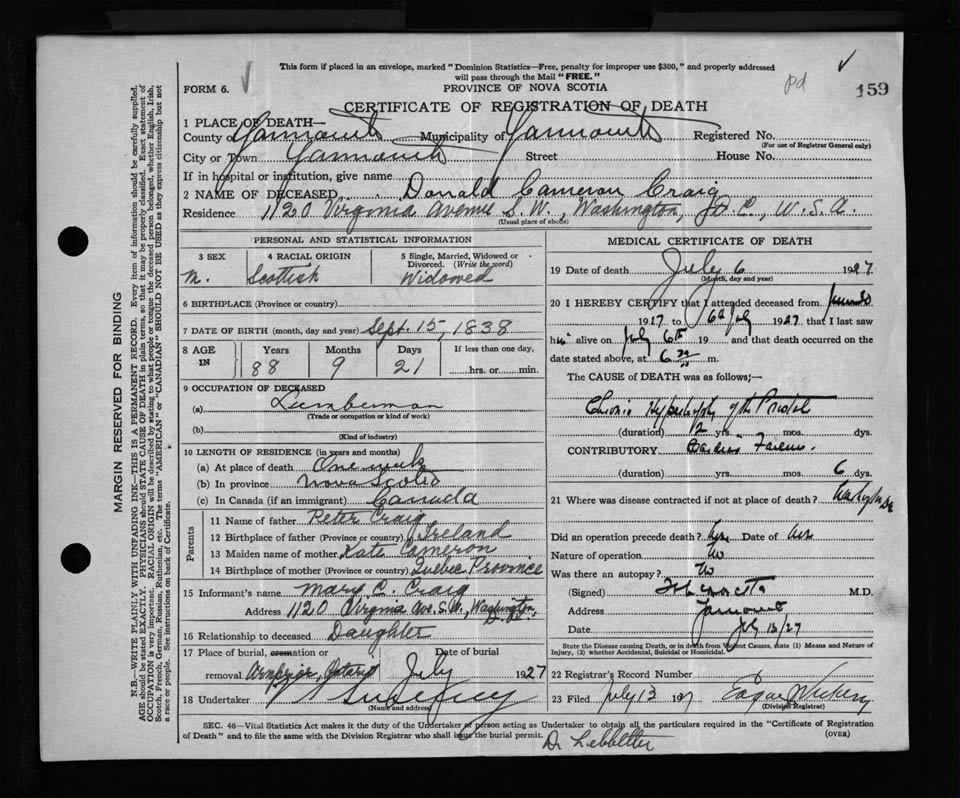 This form if placed in an envelope, marked "Dominion Statistics—Free, penalty for improper use $300," and properly addressed
will pass through the Mail "FREE."
FORM 6.
PROVINCE OF NOVA SCOTIA
pd
159
CERTIFICATE OF REGISTRATION OF DEATH
1 PLACE OF DEATH—
County of Yarmouth Municipality of Yarmouth Registered No.
(For use of Registrar General only)
City or Town Yarmouth Street House No.
If in hospital or institution, give name
2 NAME OF DECEASED Donald Cameron Craig
Residence 1120 Virginia Avenue S.W., Washington, D.C., U.S.A.
(Usual place of abode)
PERSONAL AND STATISTICAL INFORMATION
3 SEX 4 RACIAL ORIGIN 5 Single, Married, Widowed or
Divorced. (Write the word)
M. Scottish Widowed
6 BIRTHPLACE (Province or country)
7 DATE OF BIRTH (month, day and year) Sept. 15, 1838
8 AGE Years Months Days If less than one day,
IN 88 9 21 hrs. or min.
9 OCCUPATION OF DECEASED
(a) Lumberman
(Trade or occupation or kind of work)
(b)
(Kind of industry)
10 LENGTH OF RESIDENCE (in years and months)
(a) At place of death One week
(b) In province Nova Scotia
(c) In Canada (if an immigrant) Canada
Parents
11 Name of father Peter Craig
12 Birthplace of father (Province or country) Ireland
13 Maiden name of mother Kate Cameron
14 Birthplace of mother (Province or country) Quebec Province
15 Informant's name Mary C. Craig
Address 1120 Virginia Ave. S.W., Washington, D.C.
16 Relationship to deceased Daughter
17 Place of burial, cremation or Date of burial
removal Arnprior, Ontario July 1927
18 Undertaker
(Name and address)
MEDICAL CERTIFICATE OF DEATH
19 Date of death July 6 1927
(Month, day and year)
20 I HEREBY CERTIFY that I attended deceased from June 30
1927 to 6th July 1927 that I last saw
him alive on July 6th 19 and that death occurred on the
date stated above, at 6 m.
The CAUSE of DEATH was as follows;—
Chronic Hypertrophy of the Prostate
(duration) 2 yrs. mos. dys.
CONTRIBUTORY Cardiac Failure
(duration) yrs. mos. 6 dys.
21 Where was disease contracted if not at place of death?
Did an operation precede death? Date of
Nature of operation
Was there an autopsy? No
(Signed) M.D.
Address Yarmouth
Date July 13/27
State the Disease causing Death, or in death from Violent Causes, state (1) Means and Nature of
Injury, (2) whether Accidental, Suicidal or Homicidal.
22 Registrar's Record Number
23 Filed July 13 1927
(Division Registrar)
SEC. 46—Vital Statistics Act makes it the duty of the Undertaker or person acting as Undertaker to obtain all the particulars required in the "Certificate of Registration
of Death" and to file the same with the Division Registrar who shall issue the burial permit.
(OVER)
Dr Lebbetter
MARGIN RESERVED FOR BINDING
N.B.—WRITE PLAINLY WITH UNFADING INK—THIS IS A PERMANENT RECORD. Every item of information should be carefully supplied.
AGE should be stated EXACTLY. PHYSICIANS should STATE CAUSE OF DEATH in plain terms, so that it may be properly classified. Exact statement of
OCCUPATION is very important. RACIAL ORIGIN will be described by stating to what people or tongue the deceased person belonged, whether English, Irish,
Scotch, French, German, Russian, Ruthenian, etc. The terms "AMERICAN" or "CANADIAN" SHOULD NOT BE USED as they express citizenship but not
a race or people. See instructions on back of Certificate.